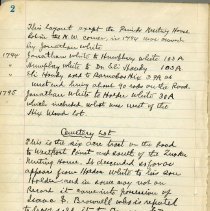 2
This Layout except the Friends Meeting House
lot in the N.W. corner, in 1794 was owned
by Jonathan White
1794 Jonathan White to Humphrey White 103 A
" Humphrey White to Dr. Eli Handy 103 A
" Eli Handy sold to Barnabas 39 A on
west end being about 90 rods on the Road.
1795 Jonathan White to Holder White 30 A
which included what was west of the
Wood Lot.
Cemetery Lot
This is the six acre tract on the road
to Westport Point and south of the Quaker
Meeting House. It descended so far as
appears from Holder White to his son
Holder and in some way not on
Record it came into possession of
Isaac C. Brownell who is reputed
to have sold it to